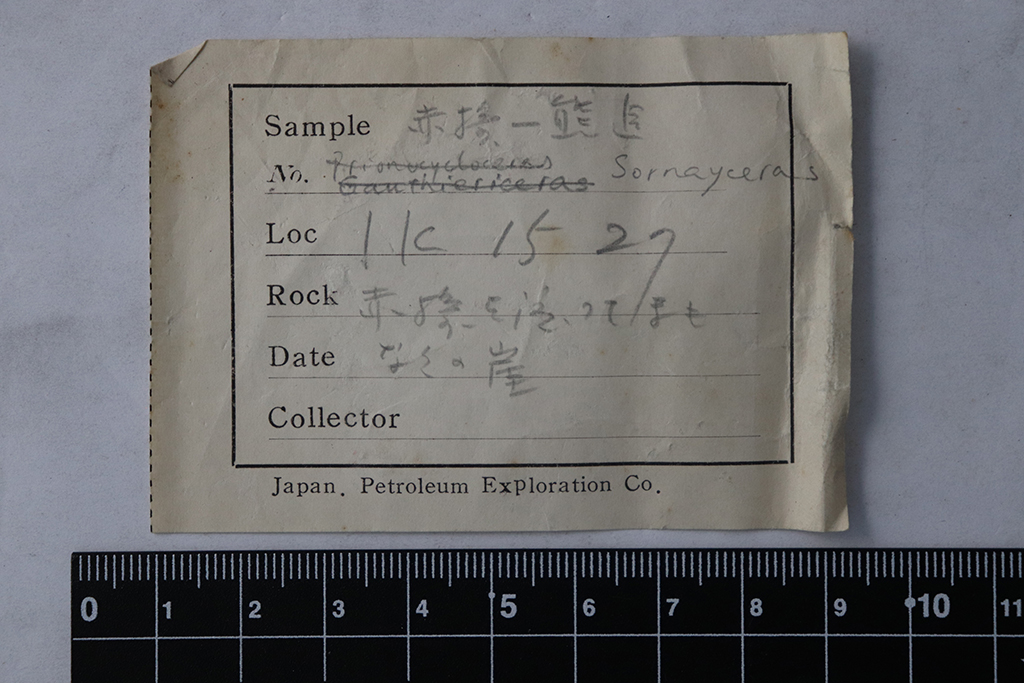 Sample 赤橋一熊追
No. Prionocycloceras
Gauthiericeras Sornayceras
Loc IK 15 27
Rock 赤橋を渡ってまも
Date なくの崖
Collector
Japan. Petroleum Exploration Co.
0 1 2 3 4 5 6 7 8 9 10 11